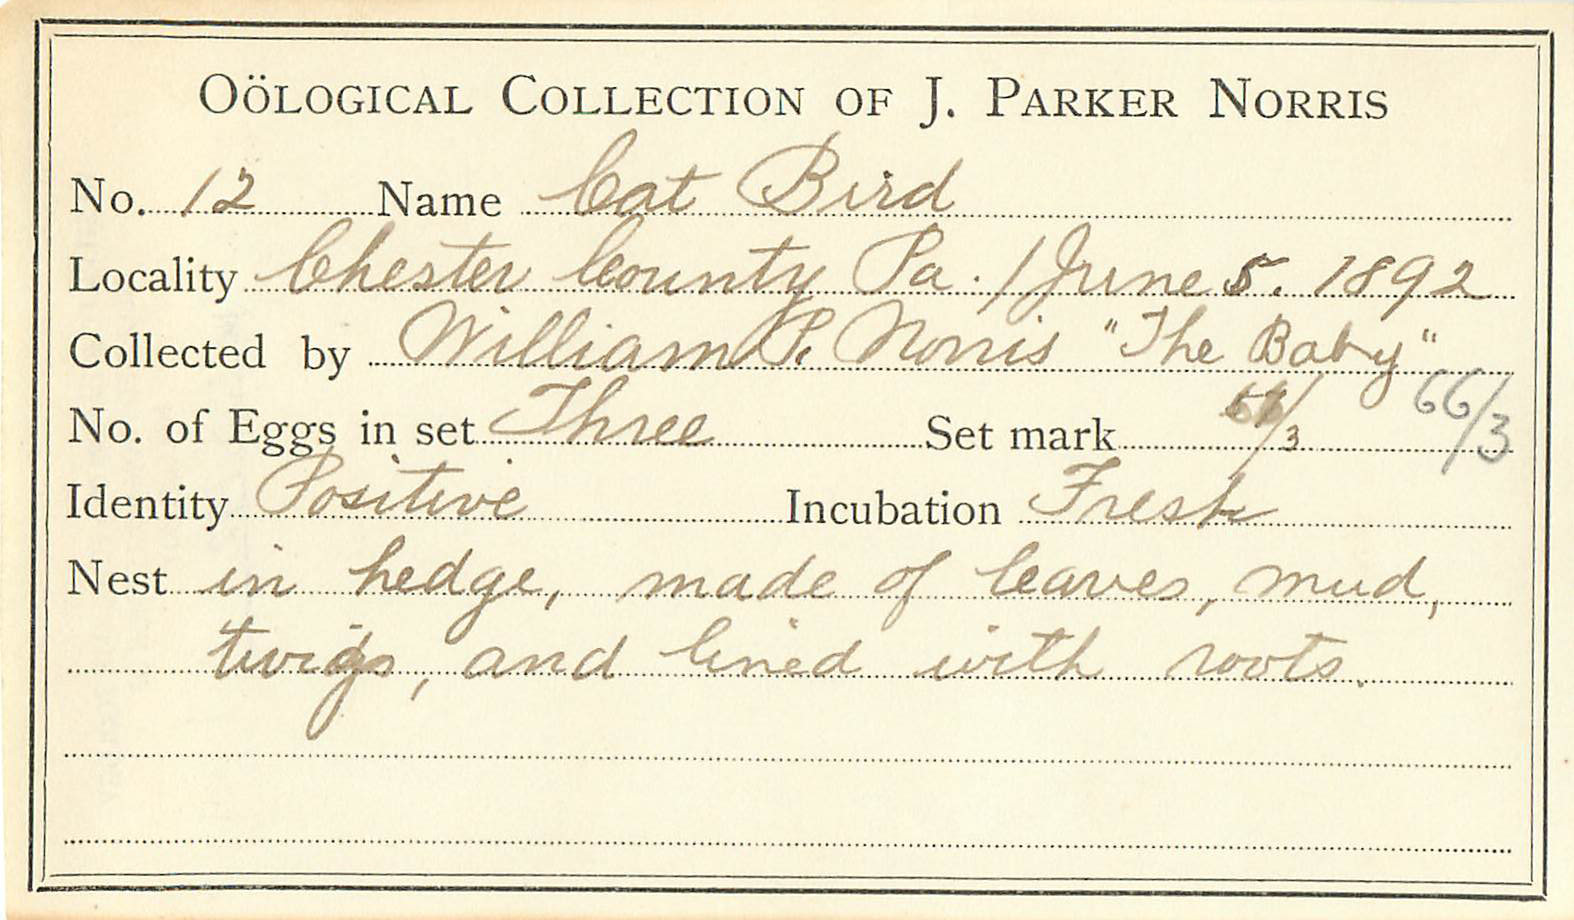 OÖLOGICAL COLLECTION OF J. PARKER NORRIS
No. 12 Name Cat Bird
Locality Chester County Pa. / June 5. 1892
Collected by William P. Norris "The Baby"
No. of Eggs in set Three Set mark /3 66/3
Identity Positive Incubation Fresh
Nest in hedge, made of leaves, mud,
twigs, and lined with roots.